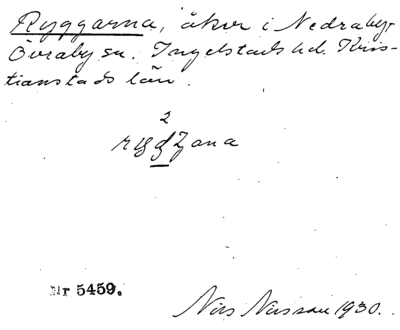 Ryggarna, åker i Nedraby,
Övraby sn. Ingelstads hd. Kris-
tianstads län.
2
Nr 5459.
Nils Nilsson 1930.